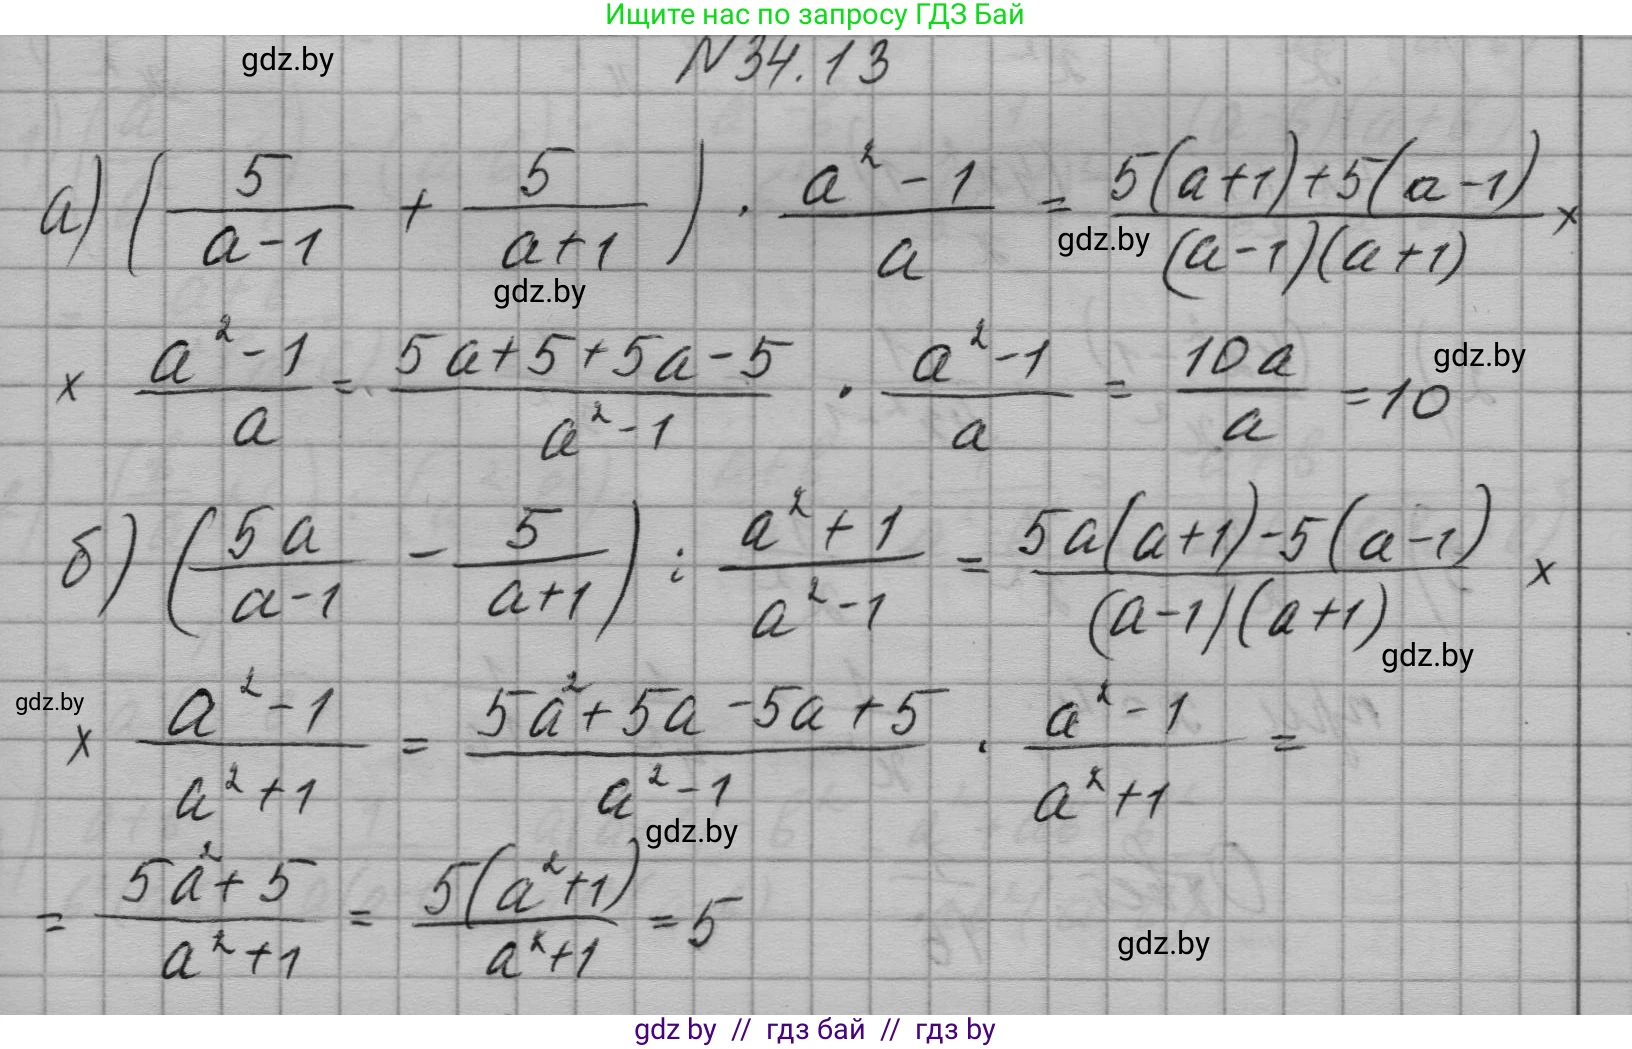 Ищите нас по запросу ГДЗ Бай
gdz.by
N 34.13
а) (5/(a-1) + 5/(a+1)) · (a²-1)/a = (5(a+1)+5(a-1))/((a-1)(a+1)) ×
gdz.by
gdz.by
× (a²-1)/a = (5a+5+5a-5)/(a²-1) · (a²-1)/a = 10a/a = 10
gdz.by
б) (5a/(a-1) - 5/(a+1)) : (a²+1)/(a²-1) = (5a(a+1)-5(a-1))/((a-1)(a+1)) ×
gdz.by
gdz.by
× (a²-1)/(a²+1) = (5a²+5a-5a+5)/(a²-1) · (a²-1)/(a²+1) =
gdz.by
= (5a²+5)/(a²+1) = 5(a²+1)/(a²+1) = 5
gdz.by
gdz by // гдз бай // гдз by